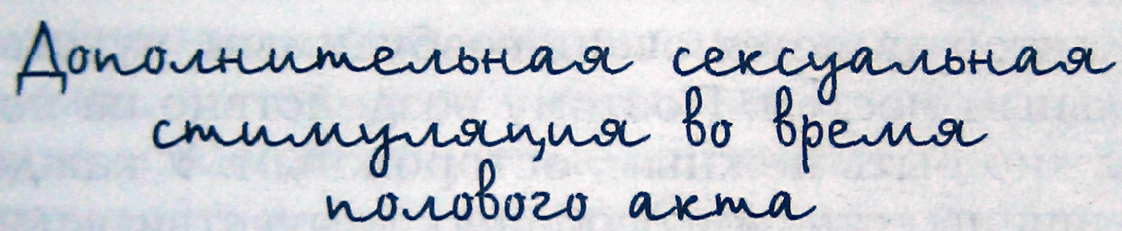 Дополнительная сексуальная
стимуляция во время
полового акта